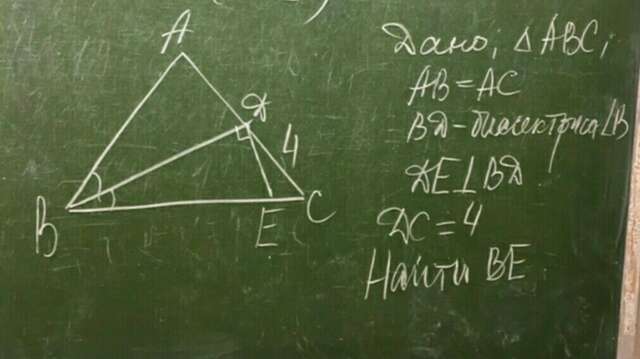 A
D
4
B
E
C
Дано; △ABC;
AB=AC
BD-биссектриса ∠B
DE⊥BD
DC=4
Найти BE